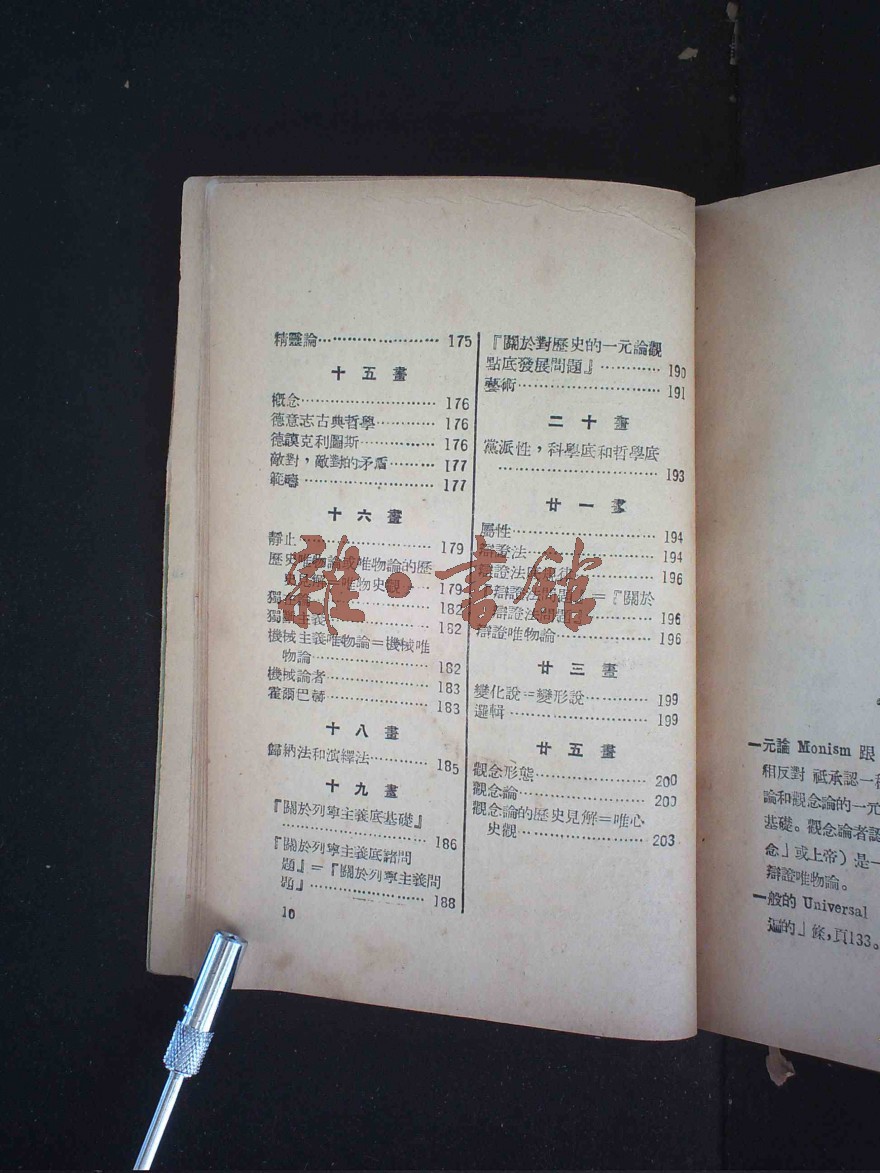 精靈論 175
十五畫
概念 176
德意志古典哲學 176
德謨克利圖斯 176
敵對，敵對的矛盾 177
範疇 177
十六畫
靜止 179
歷史唯物論或唯物論的歷
史見解＝唯物史觀 179
182
獨斷主義 182
機械主義唯物論＝機械唯
物論 182
機械論者 183
霍爾巴赫 183
十八畫
歸納法和演繹法 185
十九畫
『關於列寧主義底基礎』
186
『關於列寧主義底諸問
題』＝『關於列寧主義問
題』 188
10
『關於對歷史的一元論觀
點底發展問題』 190
藝術 191
二十畫
黨派性，科學底和哲學底
193
廿一畫
屬性 194
辯證法 194
辯證法 196
＝『關於
辯證法問題』 196
辯證唯物論 196
廿三畫
變化說＝變形說 199
邏輯 199
廿五畫
觀念形態 200
觀念論 200
觀念論的歷史見解＝唯心
史觀 203
雜·書館
一元論 Monism 跟
相反對 祗承認一
論和觀念論的一元
基礎。觀念論者認
念」或上帝）是一
辯證唯物論。
一般的 Universal
遍的」條，頁133。